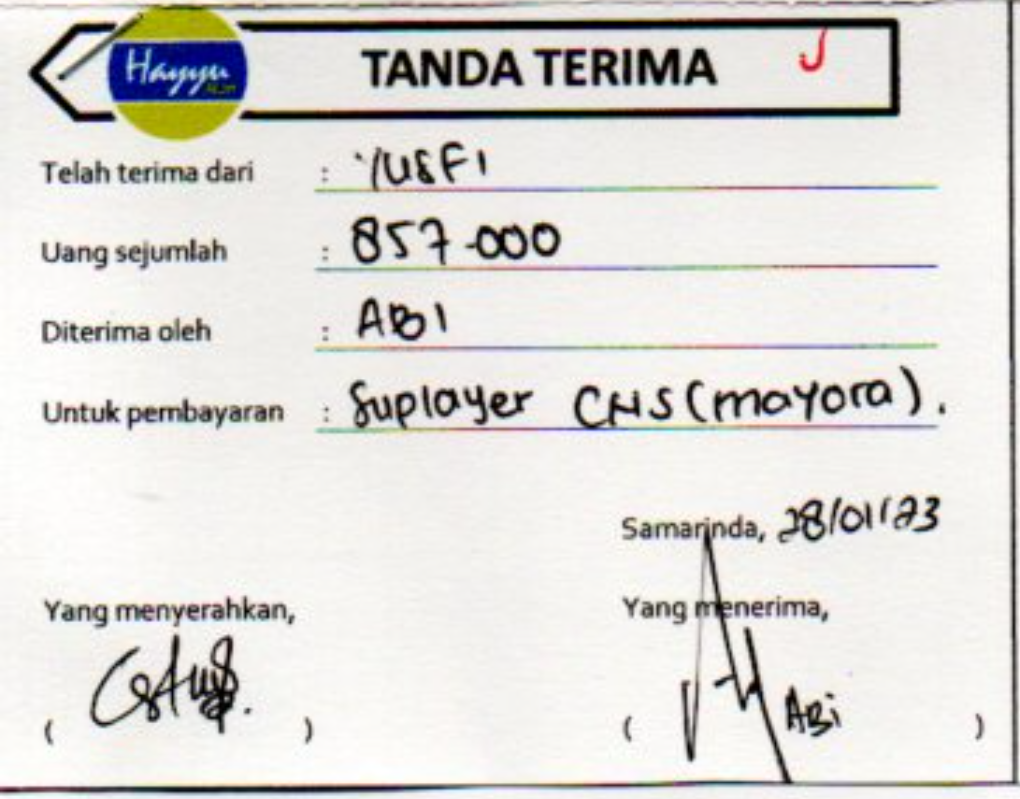 Hayyu
TANDA TERIMA
Telah terima dari : YUSFI
Uang sejumlah : 857.000
Diterima oleh : ABI
Untuk pembayaran : Suplayer CHS (mayora).
Samarinda, 28/01/23
Yang menyerahkan, Yang menerima,
( ) ( ABi )